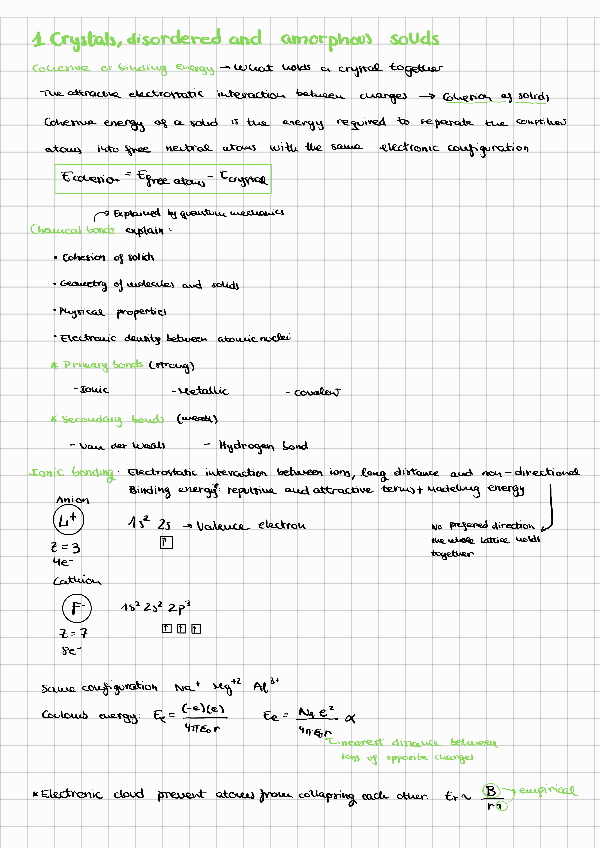 1 Crystals, disordered and amorphous solids
Cohesive or binding energy → What holds a crystal together
The attractive electrostatic interaction between charges → Cohesion of solids
Cohesive energy of a solid is the energy required to separate the
atoms into free neutral atoms with the same electronic configuration
Ecohesion = Efree atoms - Ecrystal
→ Explained by quantum mechanics
Chemical bonds explain:
• Cohesion of solids
• Geometry of molecules and solids
• Physical properties
• Electronic density between atomic nuclei
* Primary bonds (strong)
- Ionic - Metallic - covalent
* Secondary bonds (weak)
- Van der Waals - Hydrogen bond
Ionic bonding: Electrostatic interaction between ions, long distance and non-directional
Binding energy: repulsive and attractive terms + Madelung energy
Anion
Li+ 1s² 2s → Valence electron
↑
Z = 3
4e⁻
No prefered direction
the whole lattice holds
together
Cathion
F⁻ 1s² 2s² 2p³
↑ ↑ ↑
Z = 7
8e⁻
Same configuration Na⁺ Mg⁺² Al³⁺
Coulomb energy: Ec = (-e)(e) / 4πε₀r Ec = Na e² / 4πε₀r α
nearest distance between
ions of opposite charges
* Electronic cloud prevent atoms from collapsing each other. Er ~ B / rⁿ → empirical